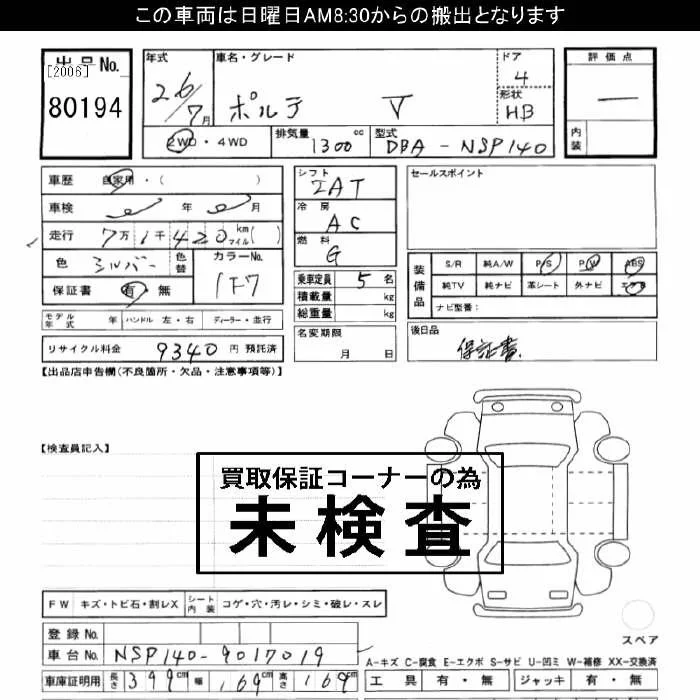 この車両は日曜日AM8:30からの搬出となります
出品No.
[2006]
80194
年式
26/7月
車名・グレード
ポルテ V
ドア
4
形状
HB
評価点
―
内装
2WD・4WD
排気量
1300 cc
型式
DBA-NSP140
車歴 自家用・( )
車検 年 月
走行 7万1千420km マイル( )
色 シルバー 色替
カラーNo.
1F7
保証書 有 無
シフト
IAT
冷房
AC
燃料
G
乗車定員 5名
積載量 kg
総重量 kg
セールスポイント
装備品
S/R 純A/W P/S P/W ABS
純TV 純ナビ 革シート 外ナビ エアB
ナビ型番:
モデル年式 年 ハンドル 左・右 ディーラー・並行
名変期限
月 日
後日品
保証書
リサイクル料金 9340 円 預託済
【出品店申告欄(不良箇所・欠品・注意事項等)】
【検査員記入】
買取保証コーナーの為
未検査
FW キズ・トビ石・割レX シート内装 コゲ・穴・汚レ・シミ・破レ・スレ
登録No.
車台No. NSP140-9017019
スペア
A-キズ C-腐食 E-エクボ S-サビ U-凹ミ W-補修 XX-交換済
車庫証明用 長さ 399cm 幅 169cm 高さ 169cm
工具 有・無 ジャッキ 有・無